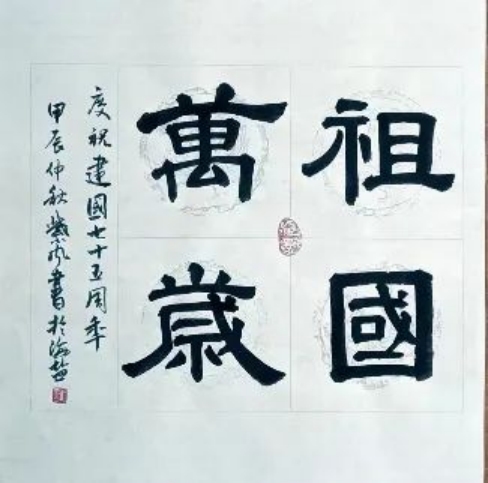 祖國
萬歲
慶祝建國七十五周年
甲辰仲秋紫風書於海超